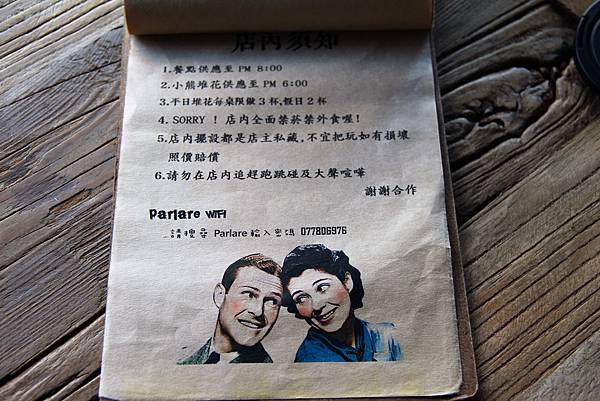 店內須知
1.餐點供應至 PM 8:00
2.小熊堆花供應至 PM 6:00
3.平日堆花每桌限做3杯,假日2杯
4.SORRY！店內全面禁菸禁外食喔!
5.店內擺設都是店主私藏,不宜把玩如有損壞
照價賠償
6.請勿在店內追趕跑跳碰及大聲喧嘩
謝謝合作
Parlare WIFI
請搜尋 Parlare 輸入密碼 077806976